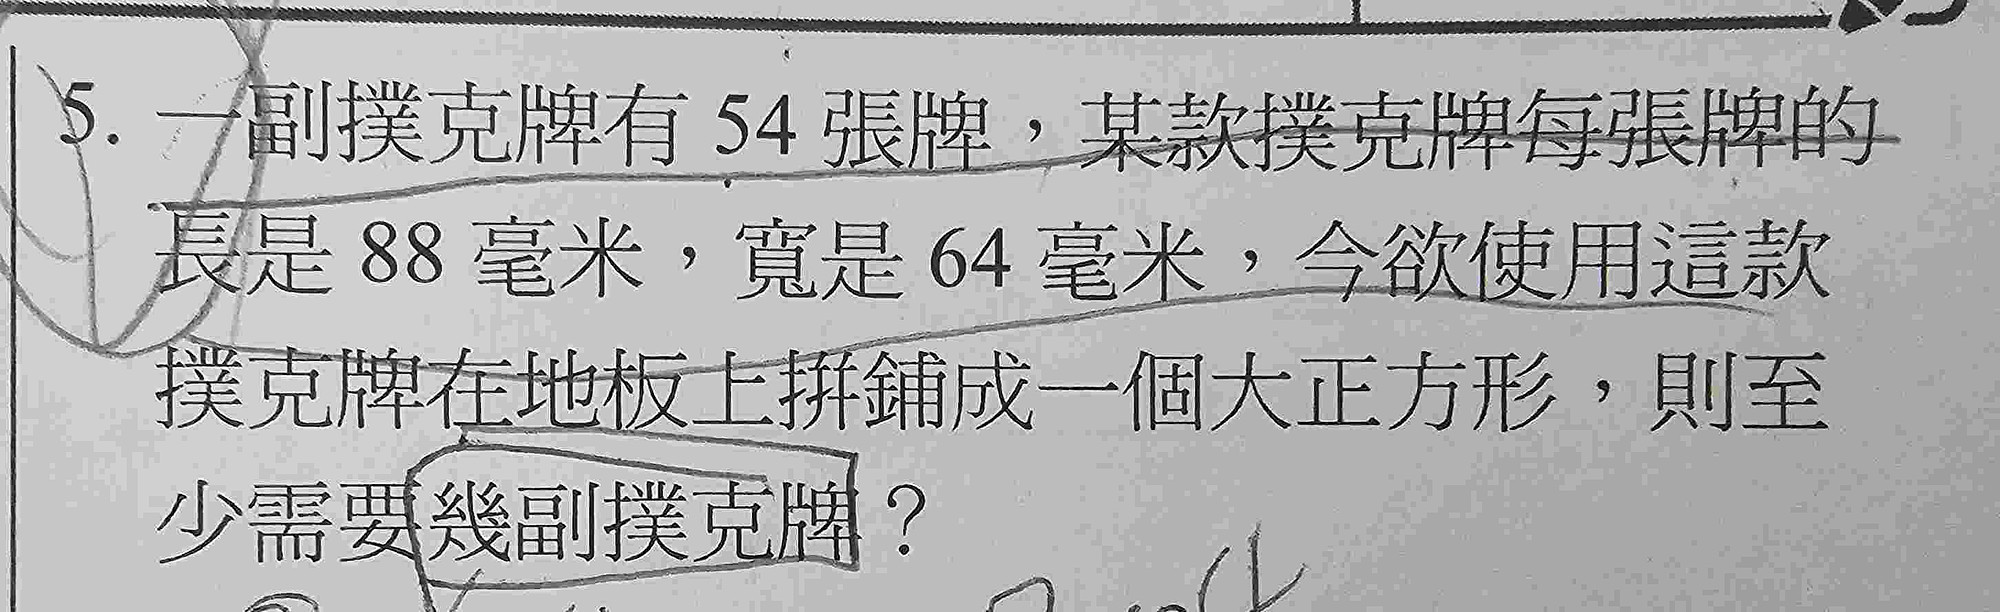 5. 一副撲克牌有 54 張牌，某款撲克牌每張牌的
長是 88 毫米，寬是 64 毫米，今欲使用這款
撲克牌在地板上拼鋪成一個大正方形，則至
少需要幾副撲克牌？